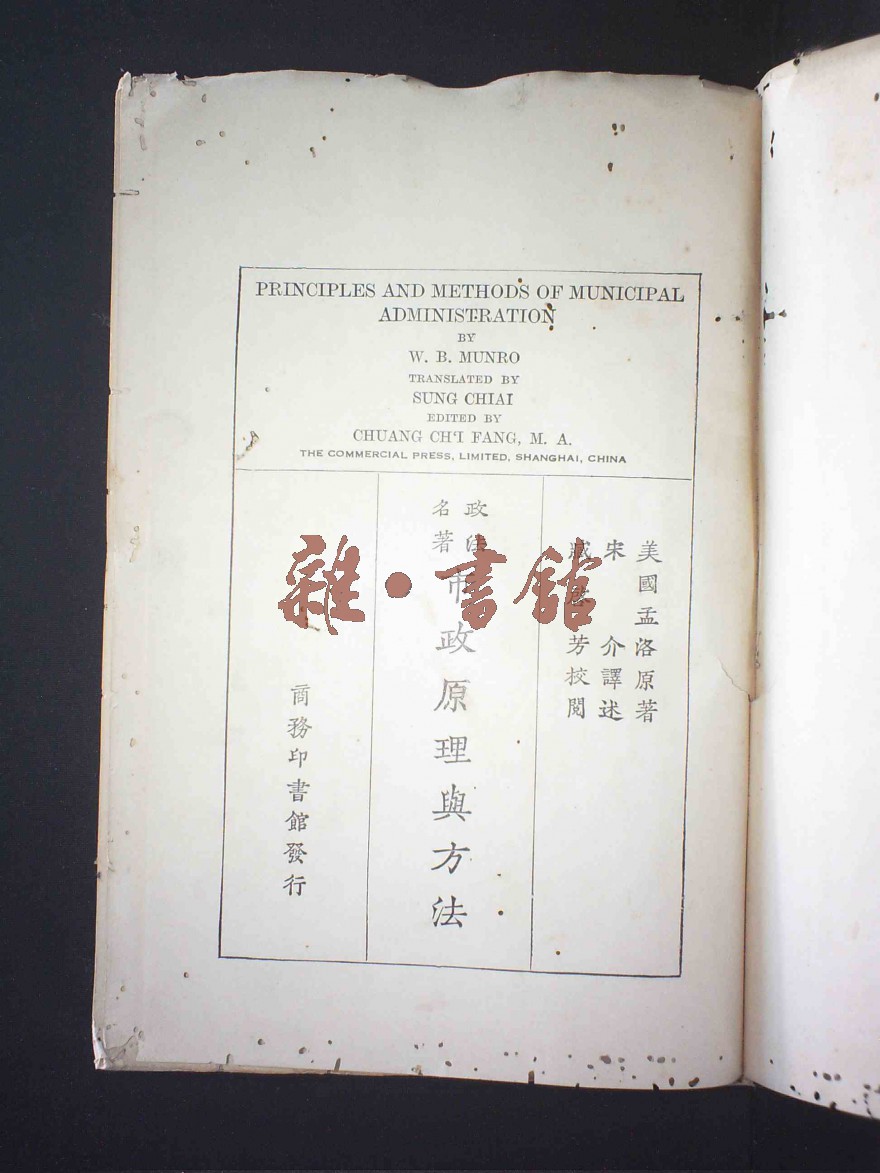 PRINCIPLES AND METHODS OF MUNICIPAL
ADMINISTRATION
BY
W. B. MUNRO
TRANSLATED BY
SUNG CHIAI
EDITED BY
CHUANG CH'I FANG, M. A.
THE COMMERCIAL PRESS, LIMITED, SHANGHAI, CHINA
美國孟洛原著
宋介譯述
臧啓芳校閱
政法
名著
市政原理與方法
商務印書館發行
雜·書館